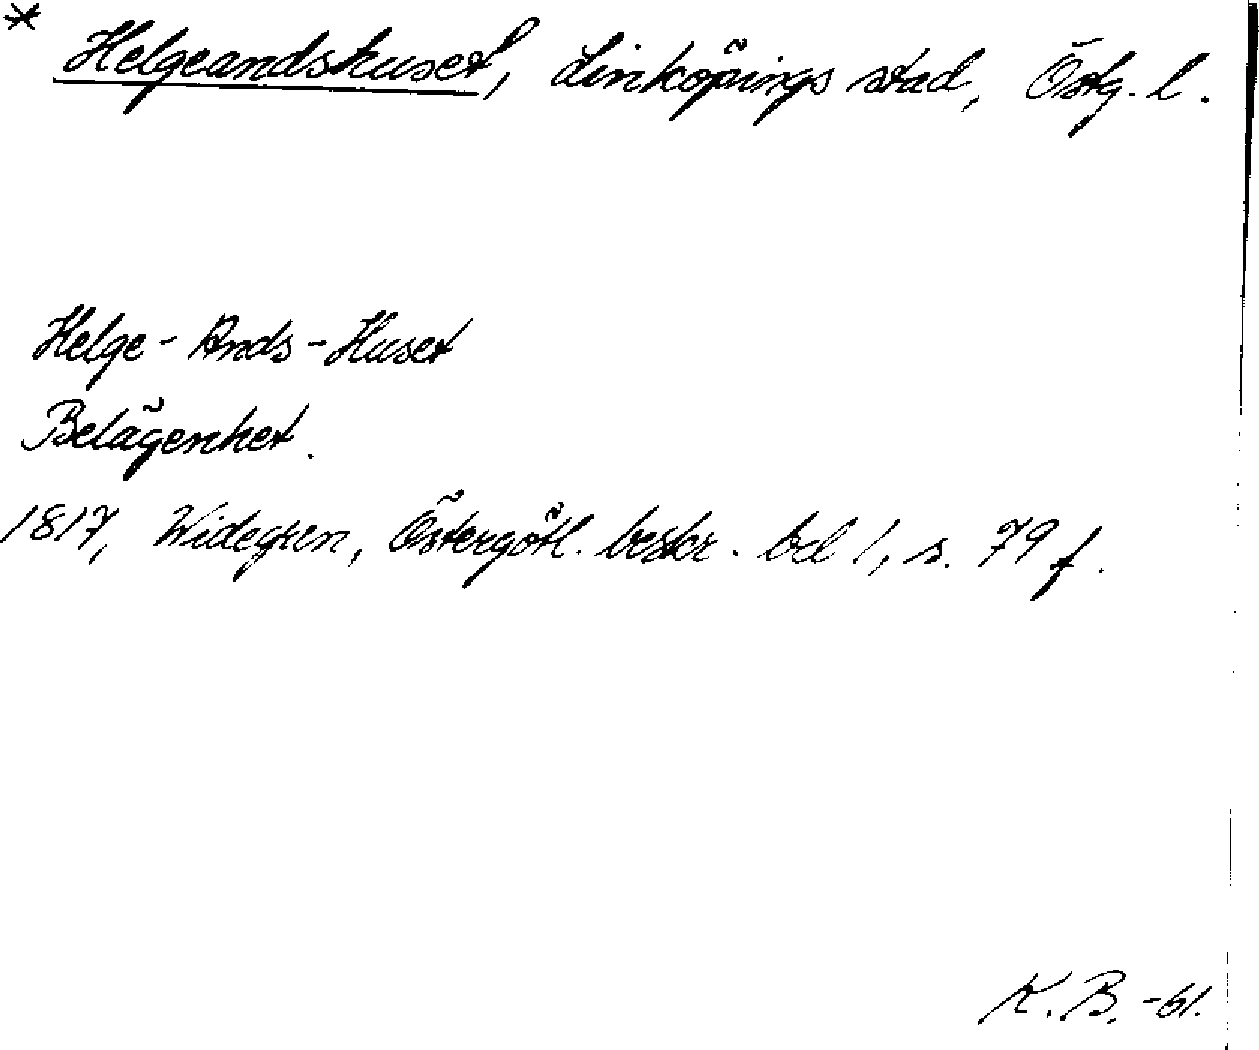 * Helgeandshuset, Linköpings stad, Östg. l.
Helge-Ands-Huset
Belägenhet.
1817, Widegren, Östergötl. beskr. bd 1, s. 79 f.
K.B. -61.